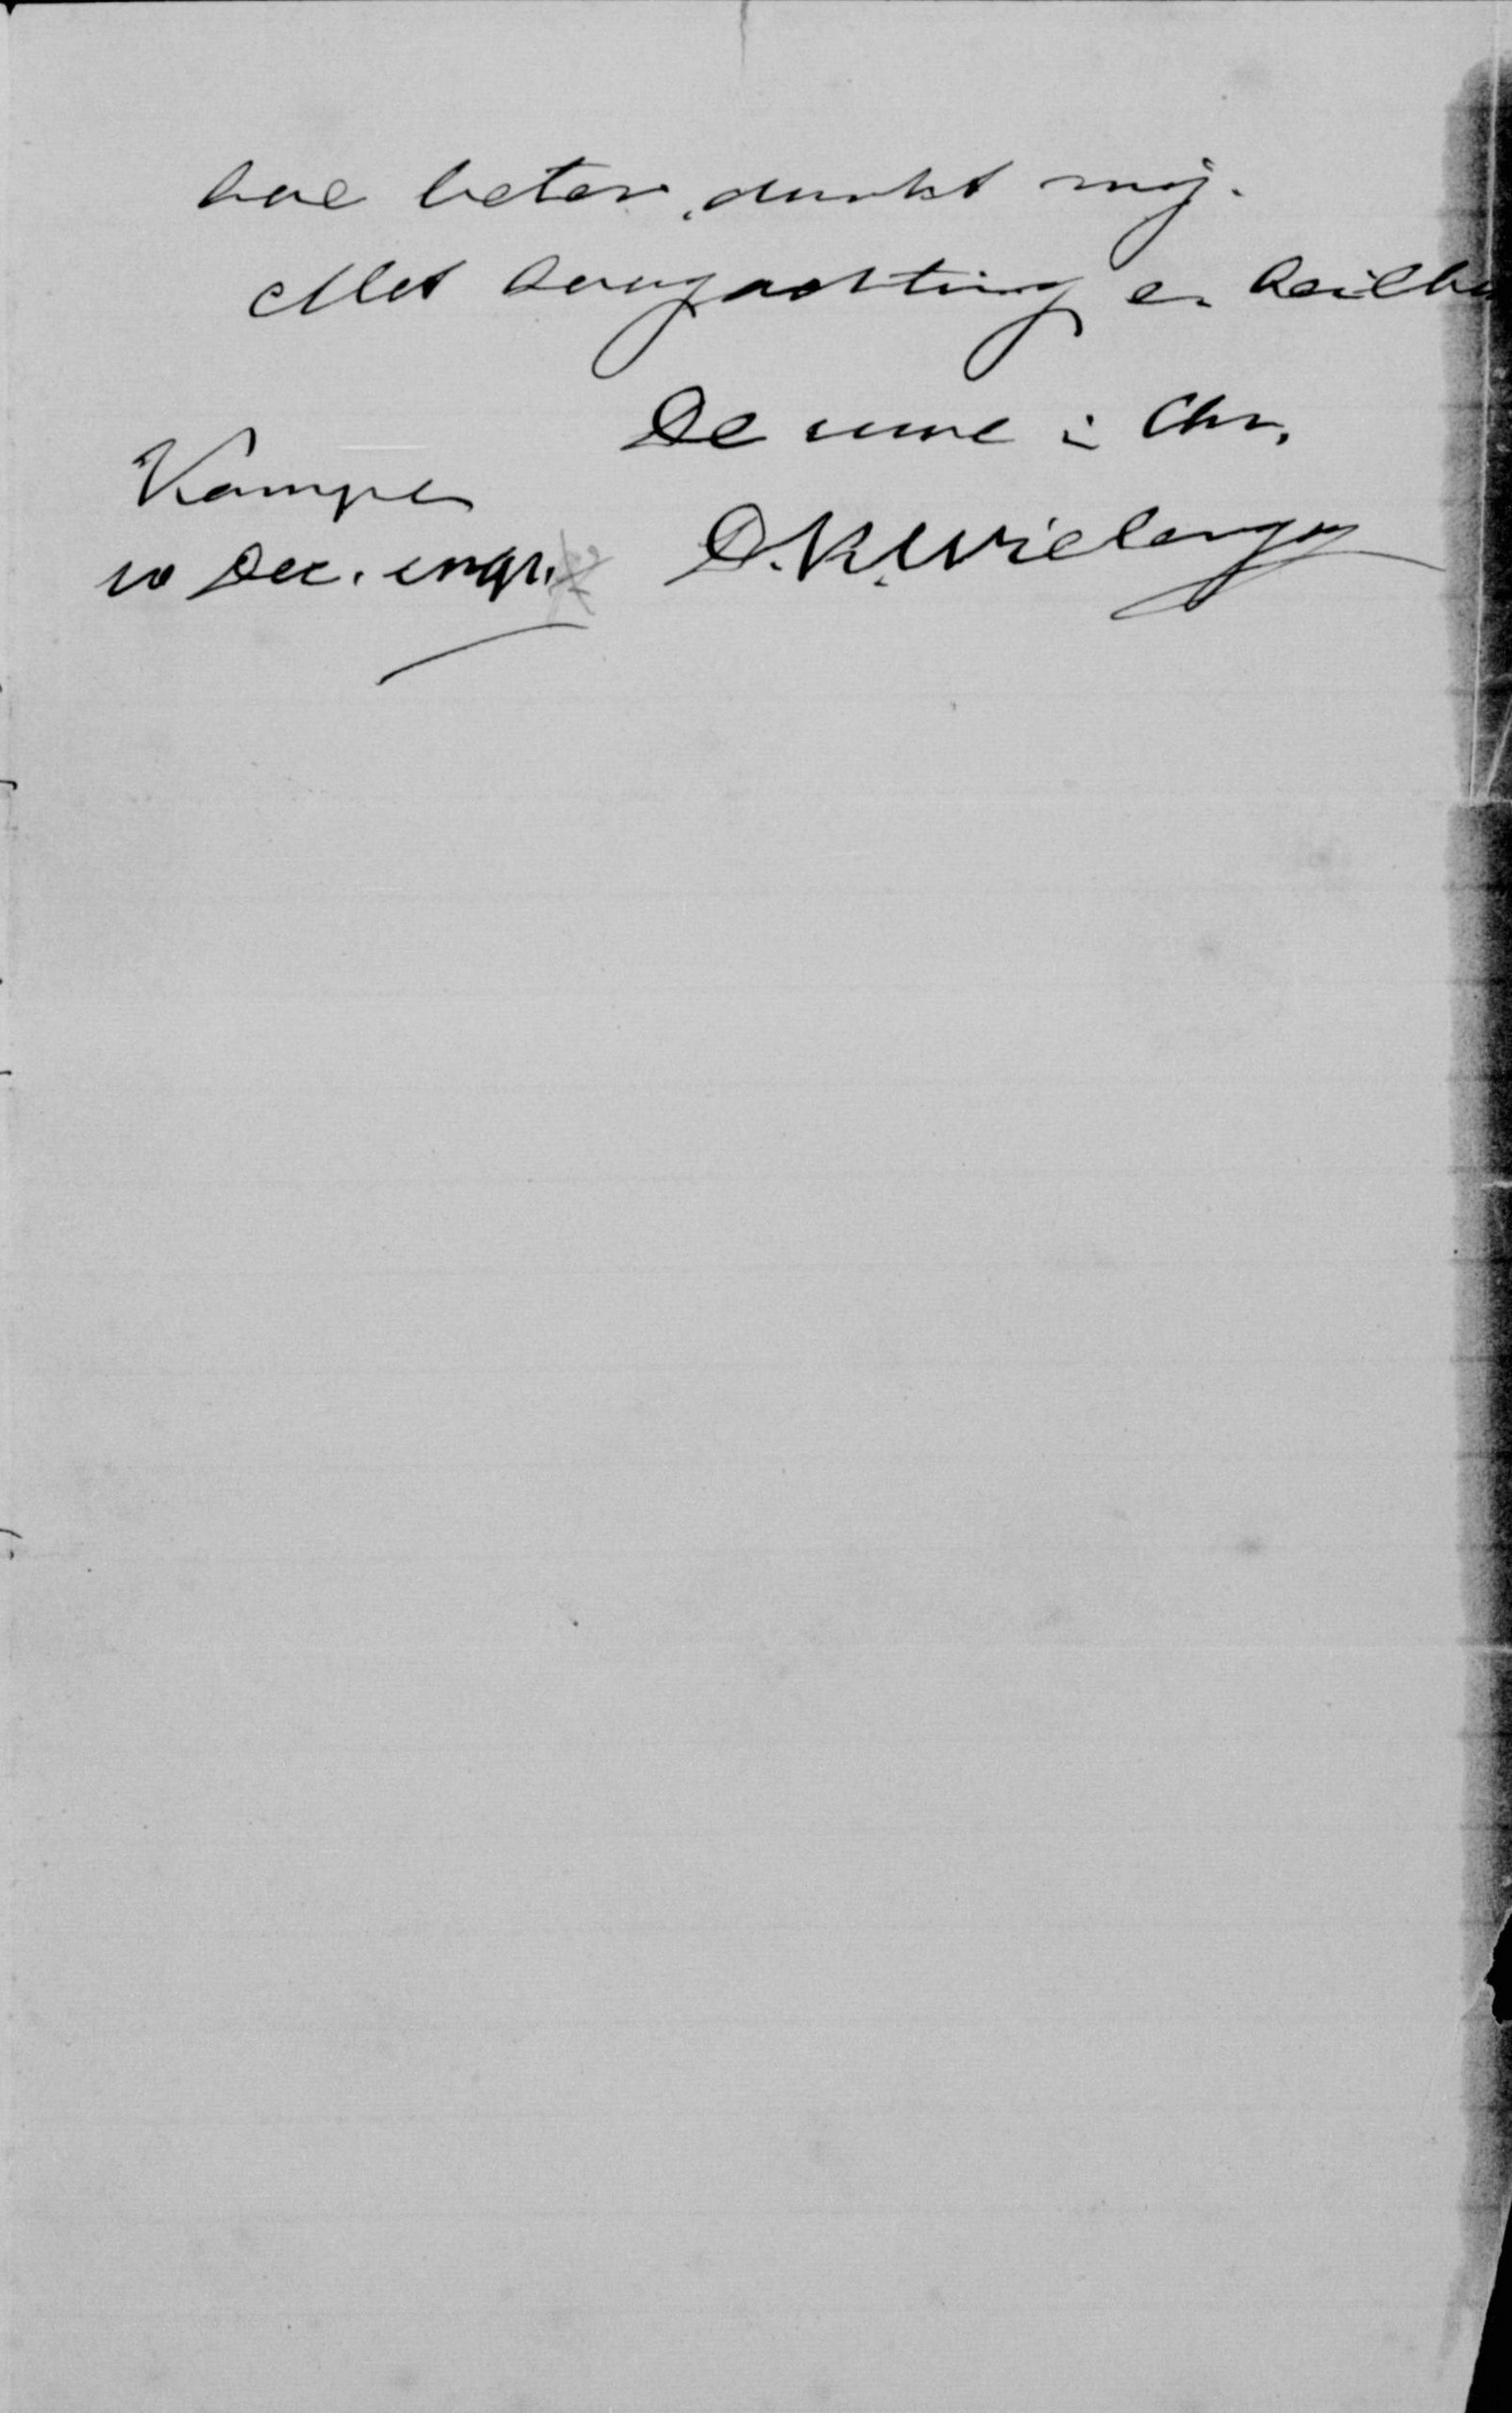 hoe beter, dunkt mij.
Met hoogachting en heilb
De uwe in Chr.
Kampen
10 Dec.
D. K. Wielenga